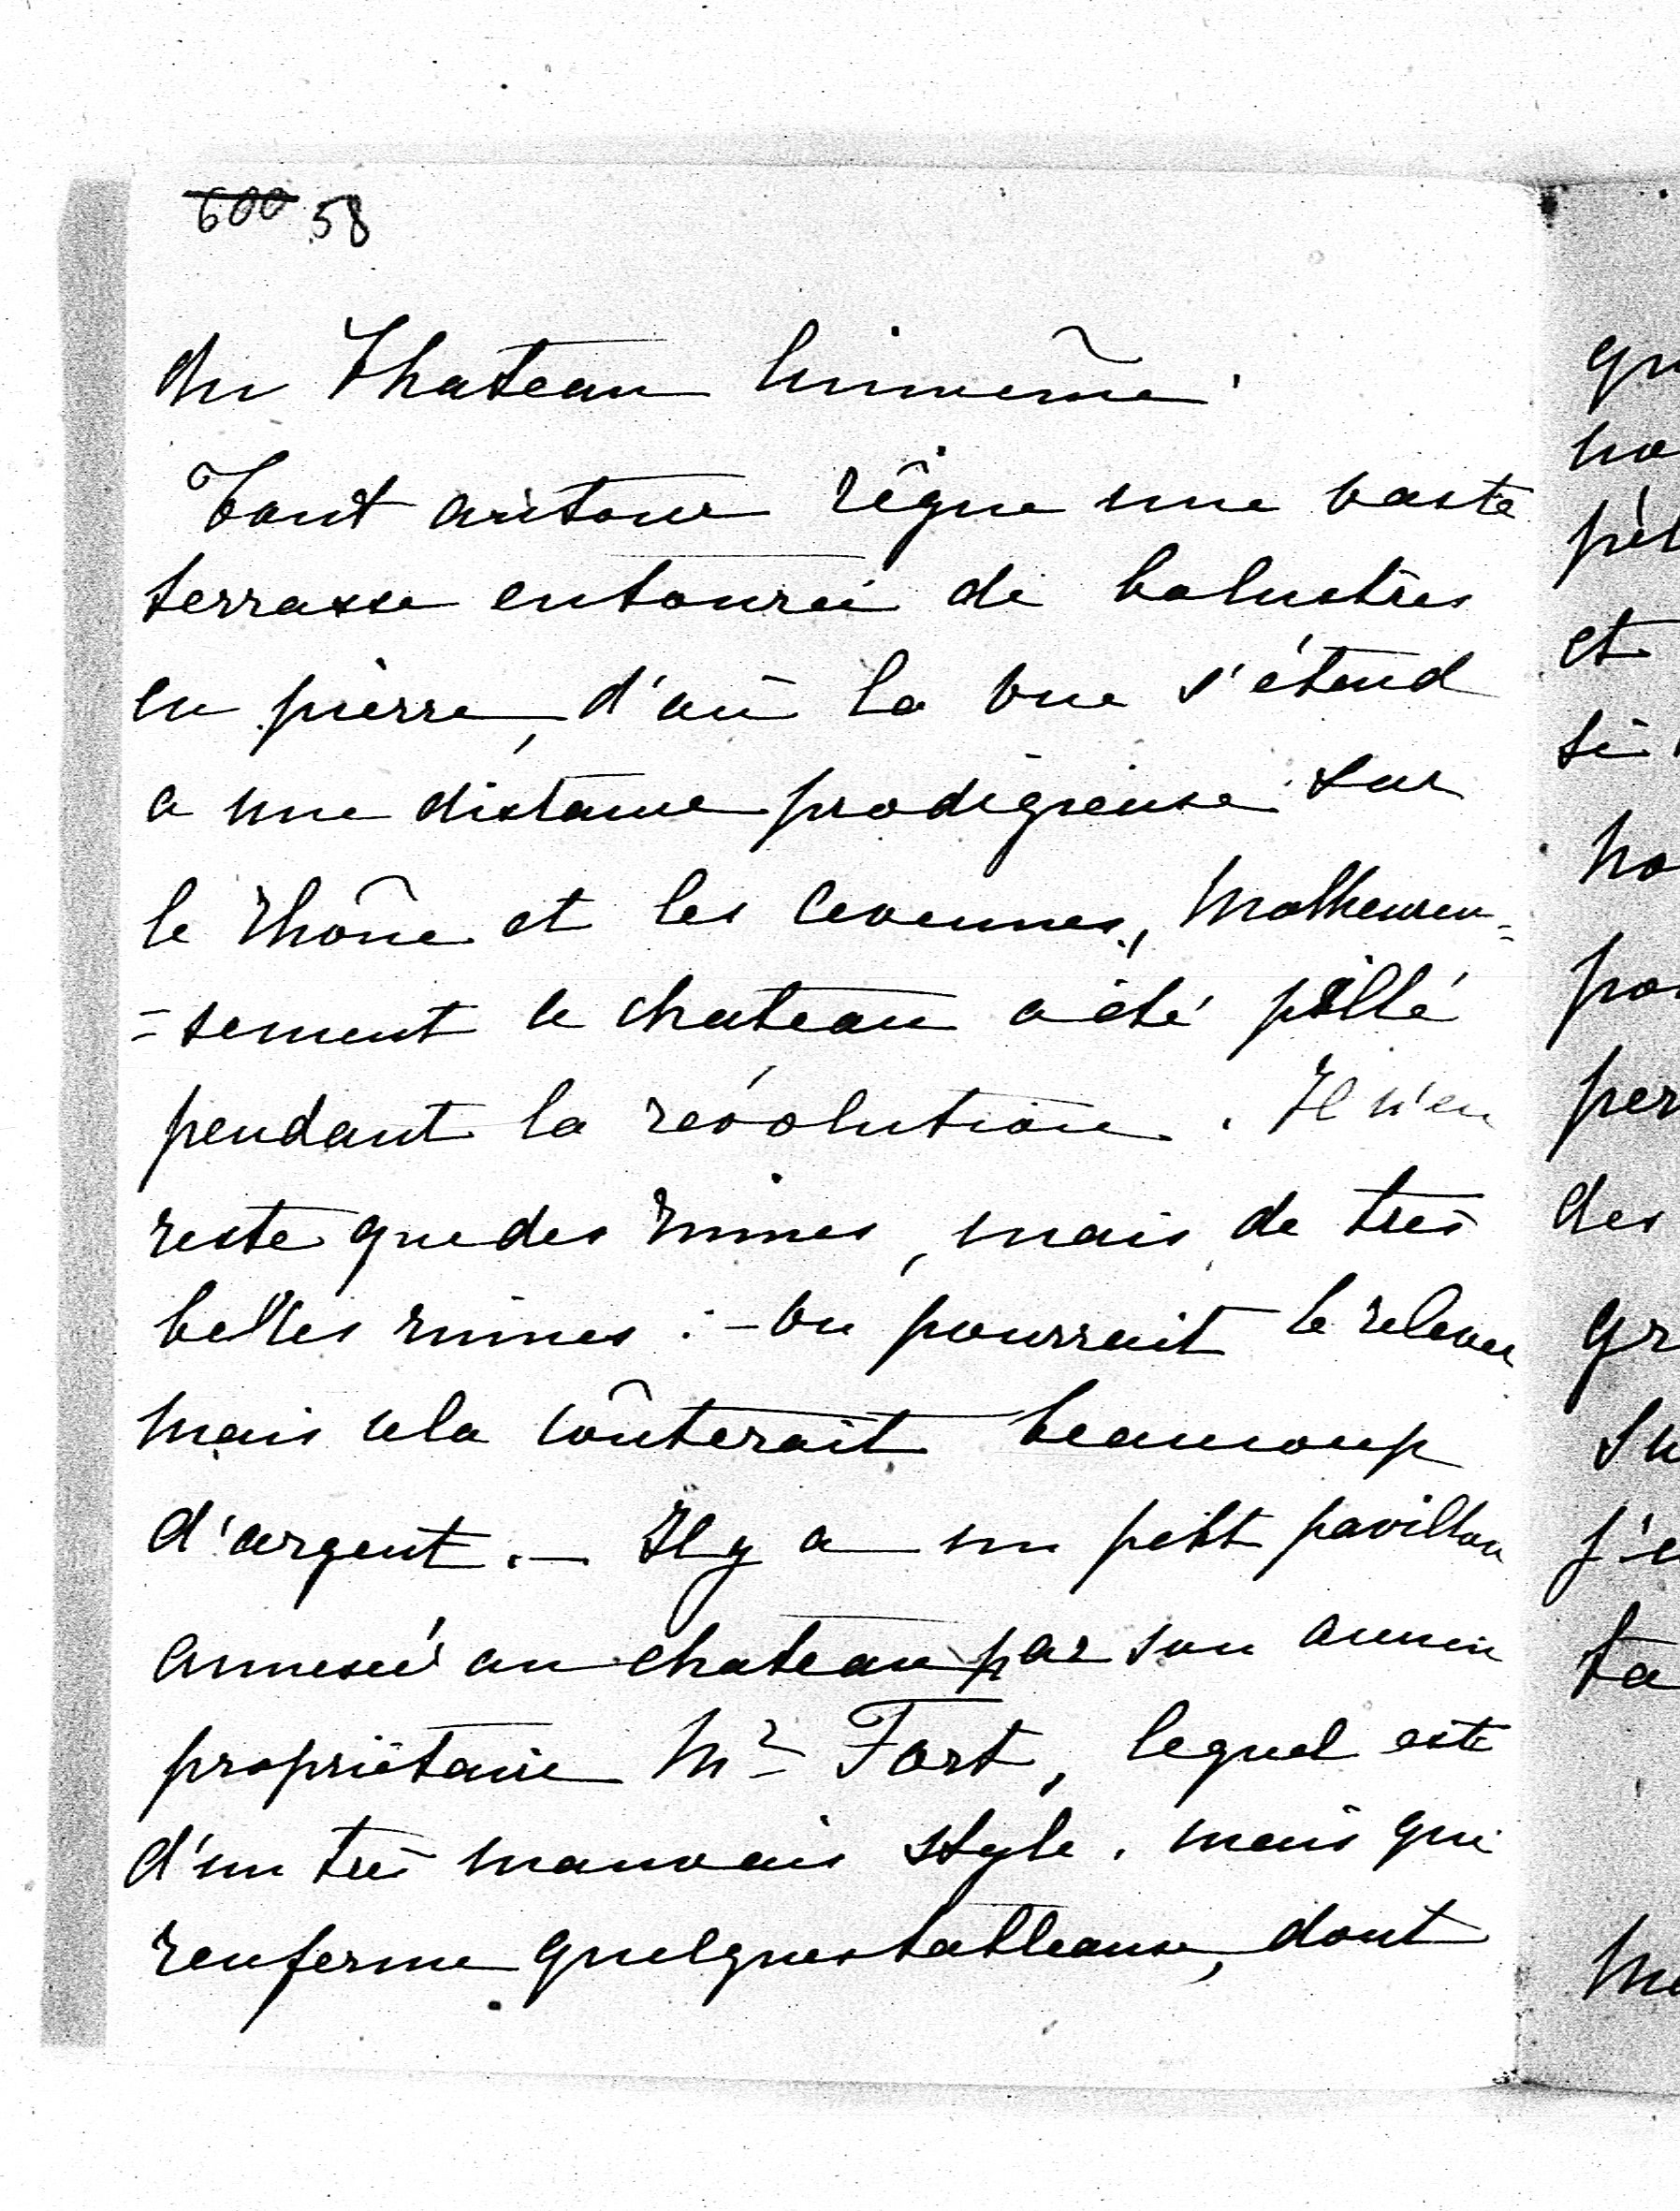 600 58
du Chateau luimême.
Tout autour règne une vaste
terrasse entourée de balustres
en pierre, d'où la vue s'étend
a une distance prodigieuse sur
le Rhône et les Cevennes, Malheureu=
=sement le chateau a été pillé
pendant la révolution. Il n'en
reste que des ruines, mais de très
belles ruines : - On pourrait le relever
mais cela coûterait beaucoup
d'argent. - Il y a un petit pavillon
annexé au chateau par son ancien
propriétaire Mr Fort, lequel est
d'un très mauvais style. mais qui
renferme quelques tableaux, dont
et
des